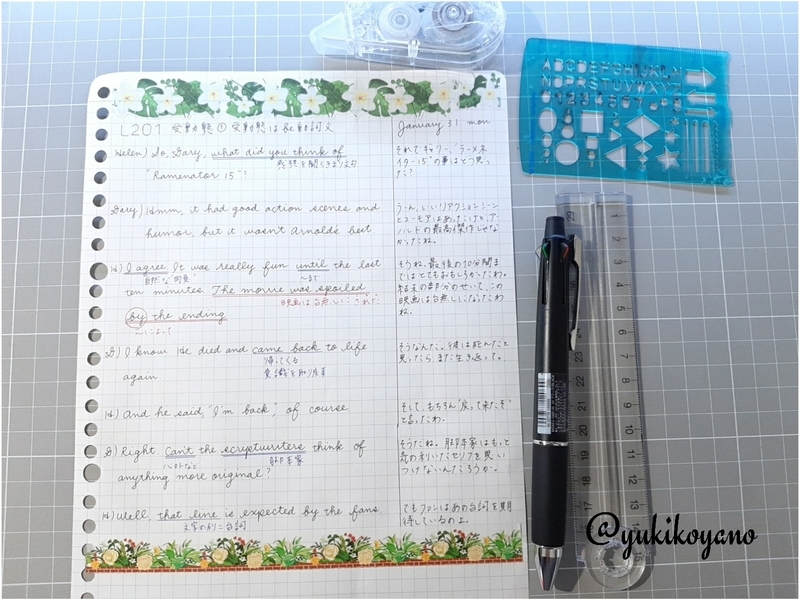 L201 受動態① 受動態はbe動詞文
January 31 mon
Helen) So, Gary, what did you think of
感想を聞くきまり文句
"Ramenator 15"?
Gary) Hmm, it had good action scenes and
humor, but it wasn't Arnold's best
H) I agree. It was really fun until the last
自然な同意 〜まで
ten minutes. The movie was spoiled
映画は台無しにされた
by the ending
〜によって
G) I know He died and came back to life
帰ってくる
again 意識を取り戻す
H) And he said, "I'm back", of course
G) Right. Can't the scriptwriters think of
脚本家
anything more original?
H) Well, that line is expected by the fans
文字の列=台詞
それでギャリー、"ラーメネ
イター15"の事はどう思っ
た?
うーん、いいリアクションシーン
とユーモアはあったけど、ア
ーノルドの最高傑作じゃな
かったね。
そうね、最後の10分間ま
ではとてもおもしろかったわ。
結末の部分のせいで、この
映画は台無しになったわ
ね。
そうなんだ。彼は死んだと
思ったら、また生き返って。
そして、もちろん"戻って来たぞ"
と言ったわ。
そうだね。脚本家はもっと
気の利いたセリフを思い
つけないんだろうか。
でもファンはあの台詞を期
待しているのよ。
ABCDEFGHIJKLM
NOPQRSTUVWXYZ
@yukikoyano